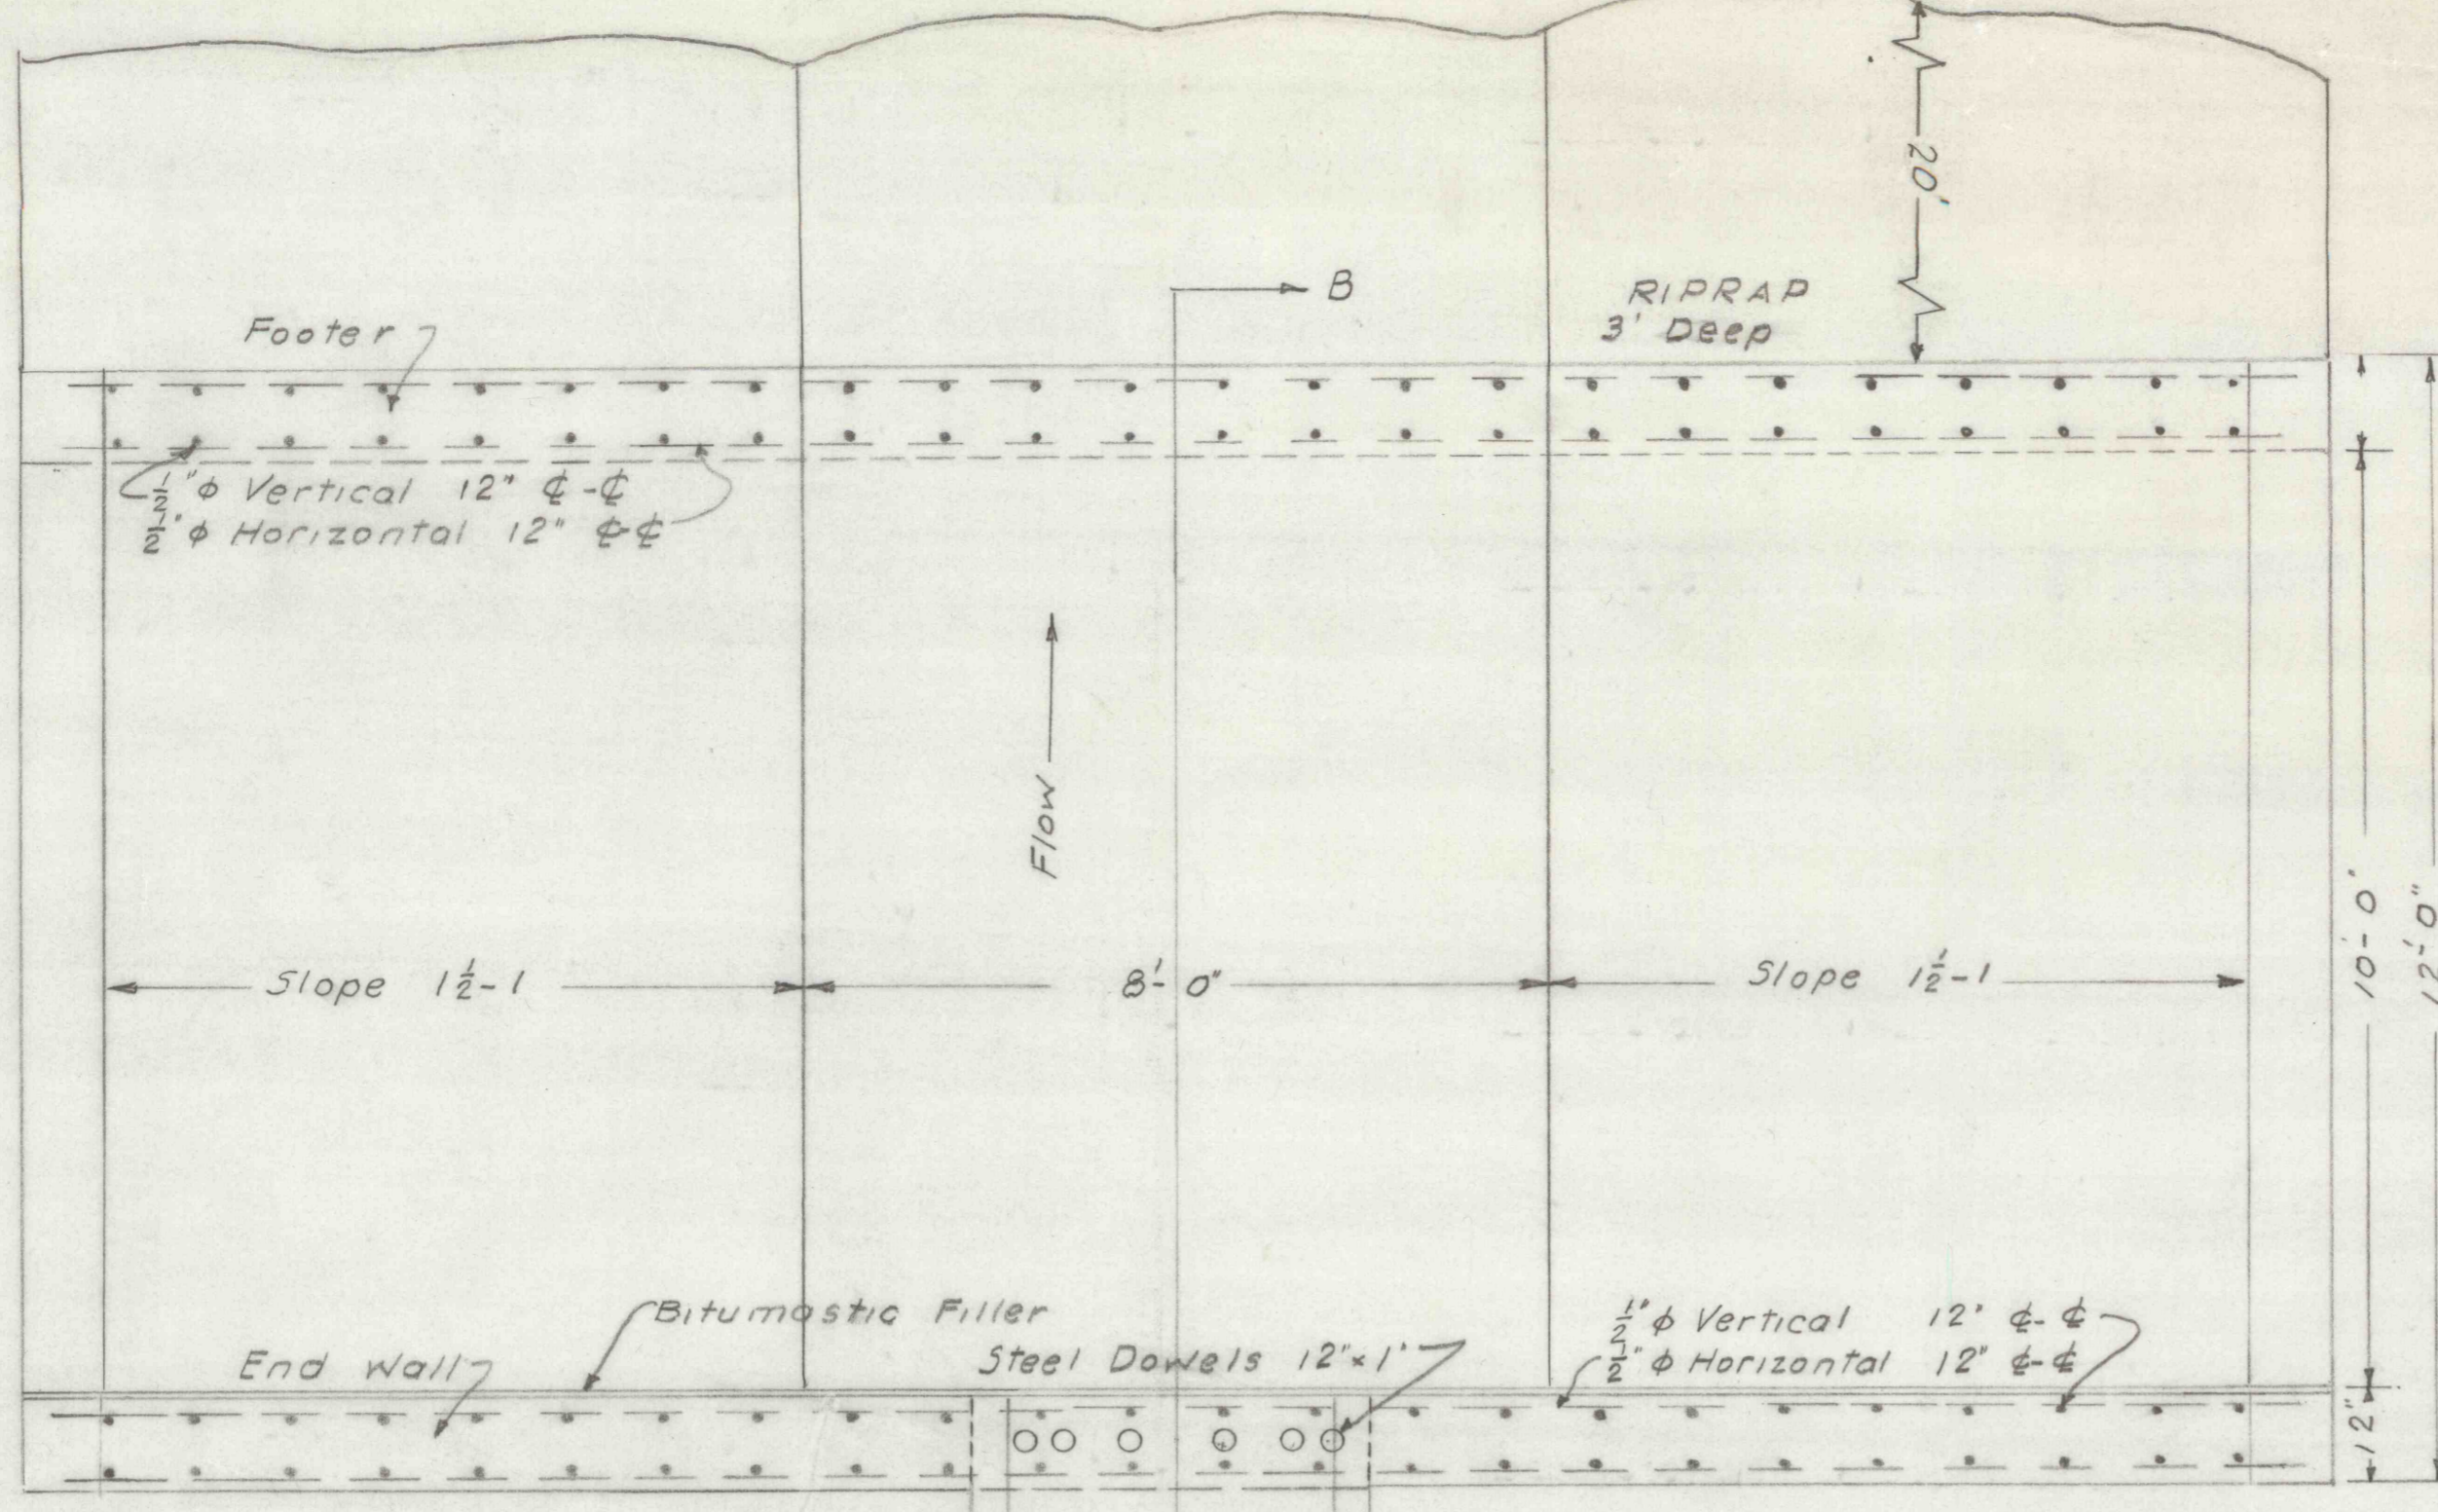 20'
B
RIPRAP
3' Deep
Footer
1/2" ϕ Vertical 12" ℄-℄
1/2" ϕ Horizontal 12" ℄-℄
Flow
Slope 1 1/2-1
8'-0"
Slope 1 1/2-1
10'-0"
12'-0"
Bitumastic Filler
End Wall
Steel Dowels 12"x1"
1/2" ϕ Vertical 12" ℄-℄
1/2" ϕ Horizontal 12" ℄-℄
12"